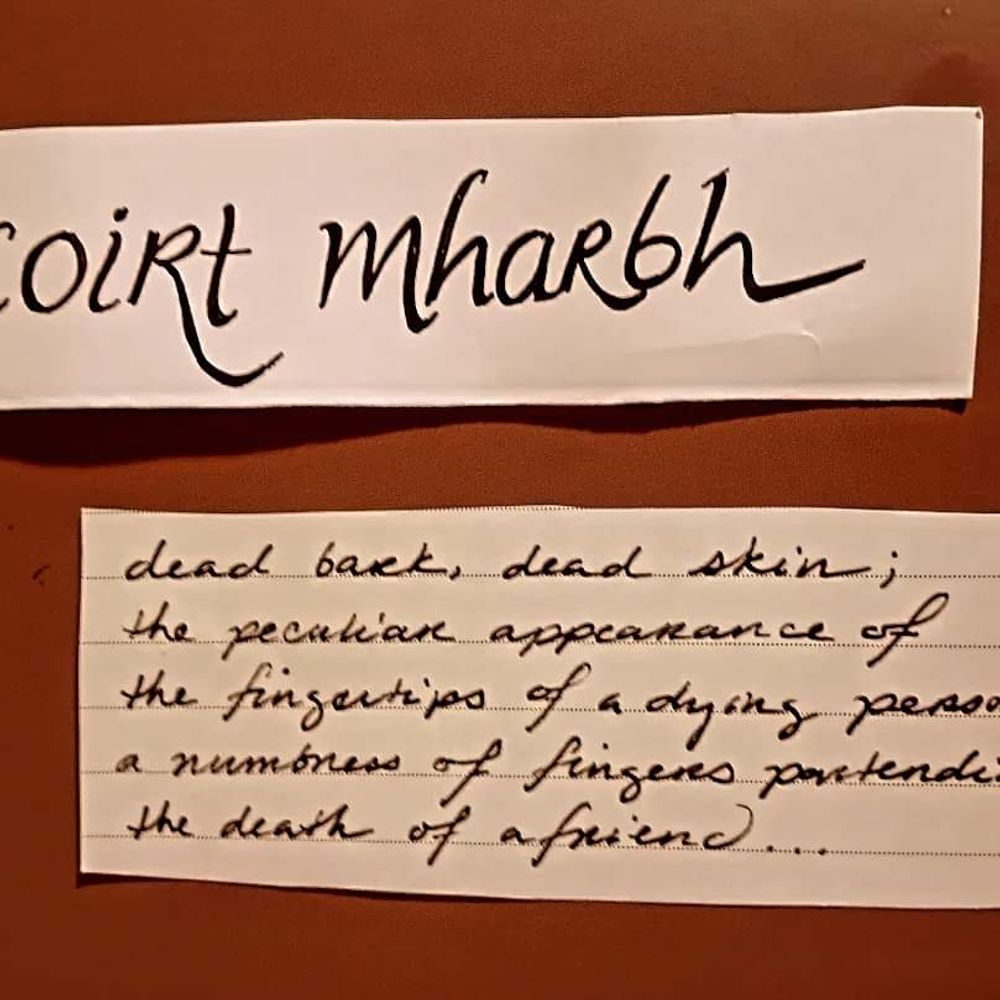 coirt mharbh
dead bark, dead skin;
the peculiar appearance of
the fingertips of a dying perso
a numbness of fingers portendi
the death of a friend....